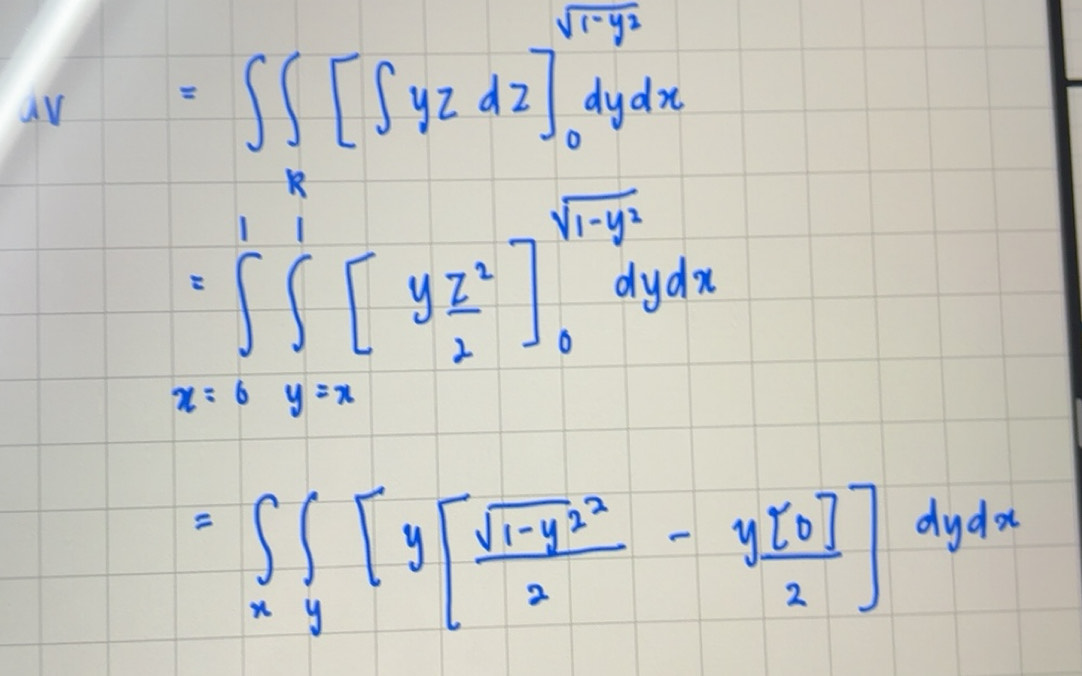 dv = ∫∫_R [∫ yz dz]_0^{√(1-y²)} dydx
= ∫_{x=0}^{1} ∫_{y=x}^{1} [y z²/2]_0^{√(1-y²)} dydx
= ∫_x ∫_y [y[√(1-y²)²/2 - y[0]/2] dydx